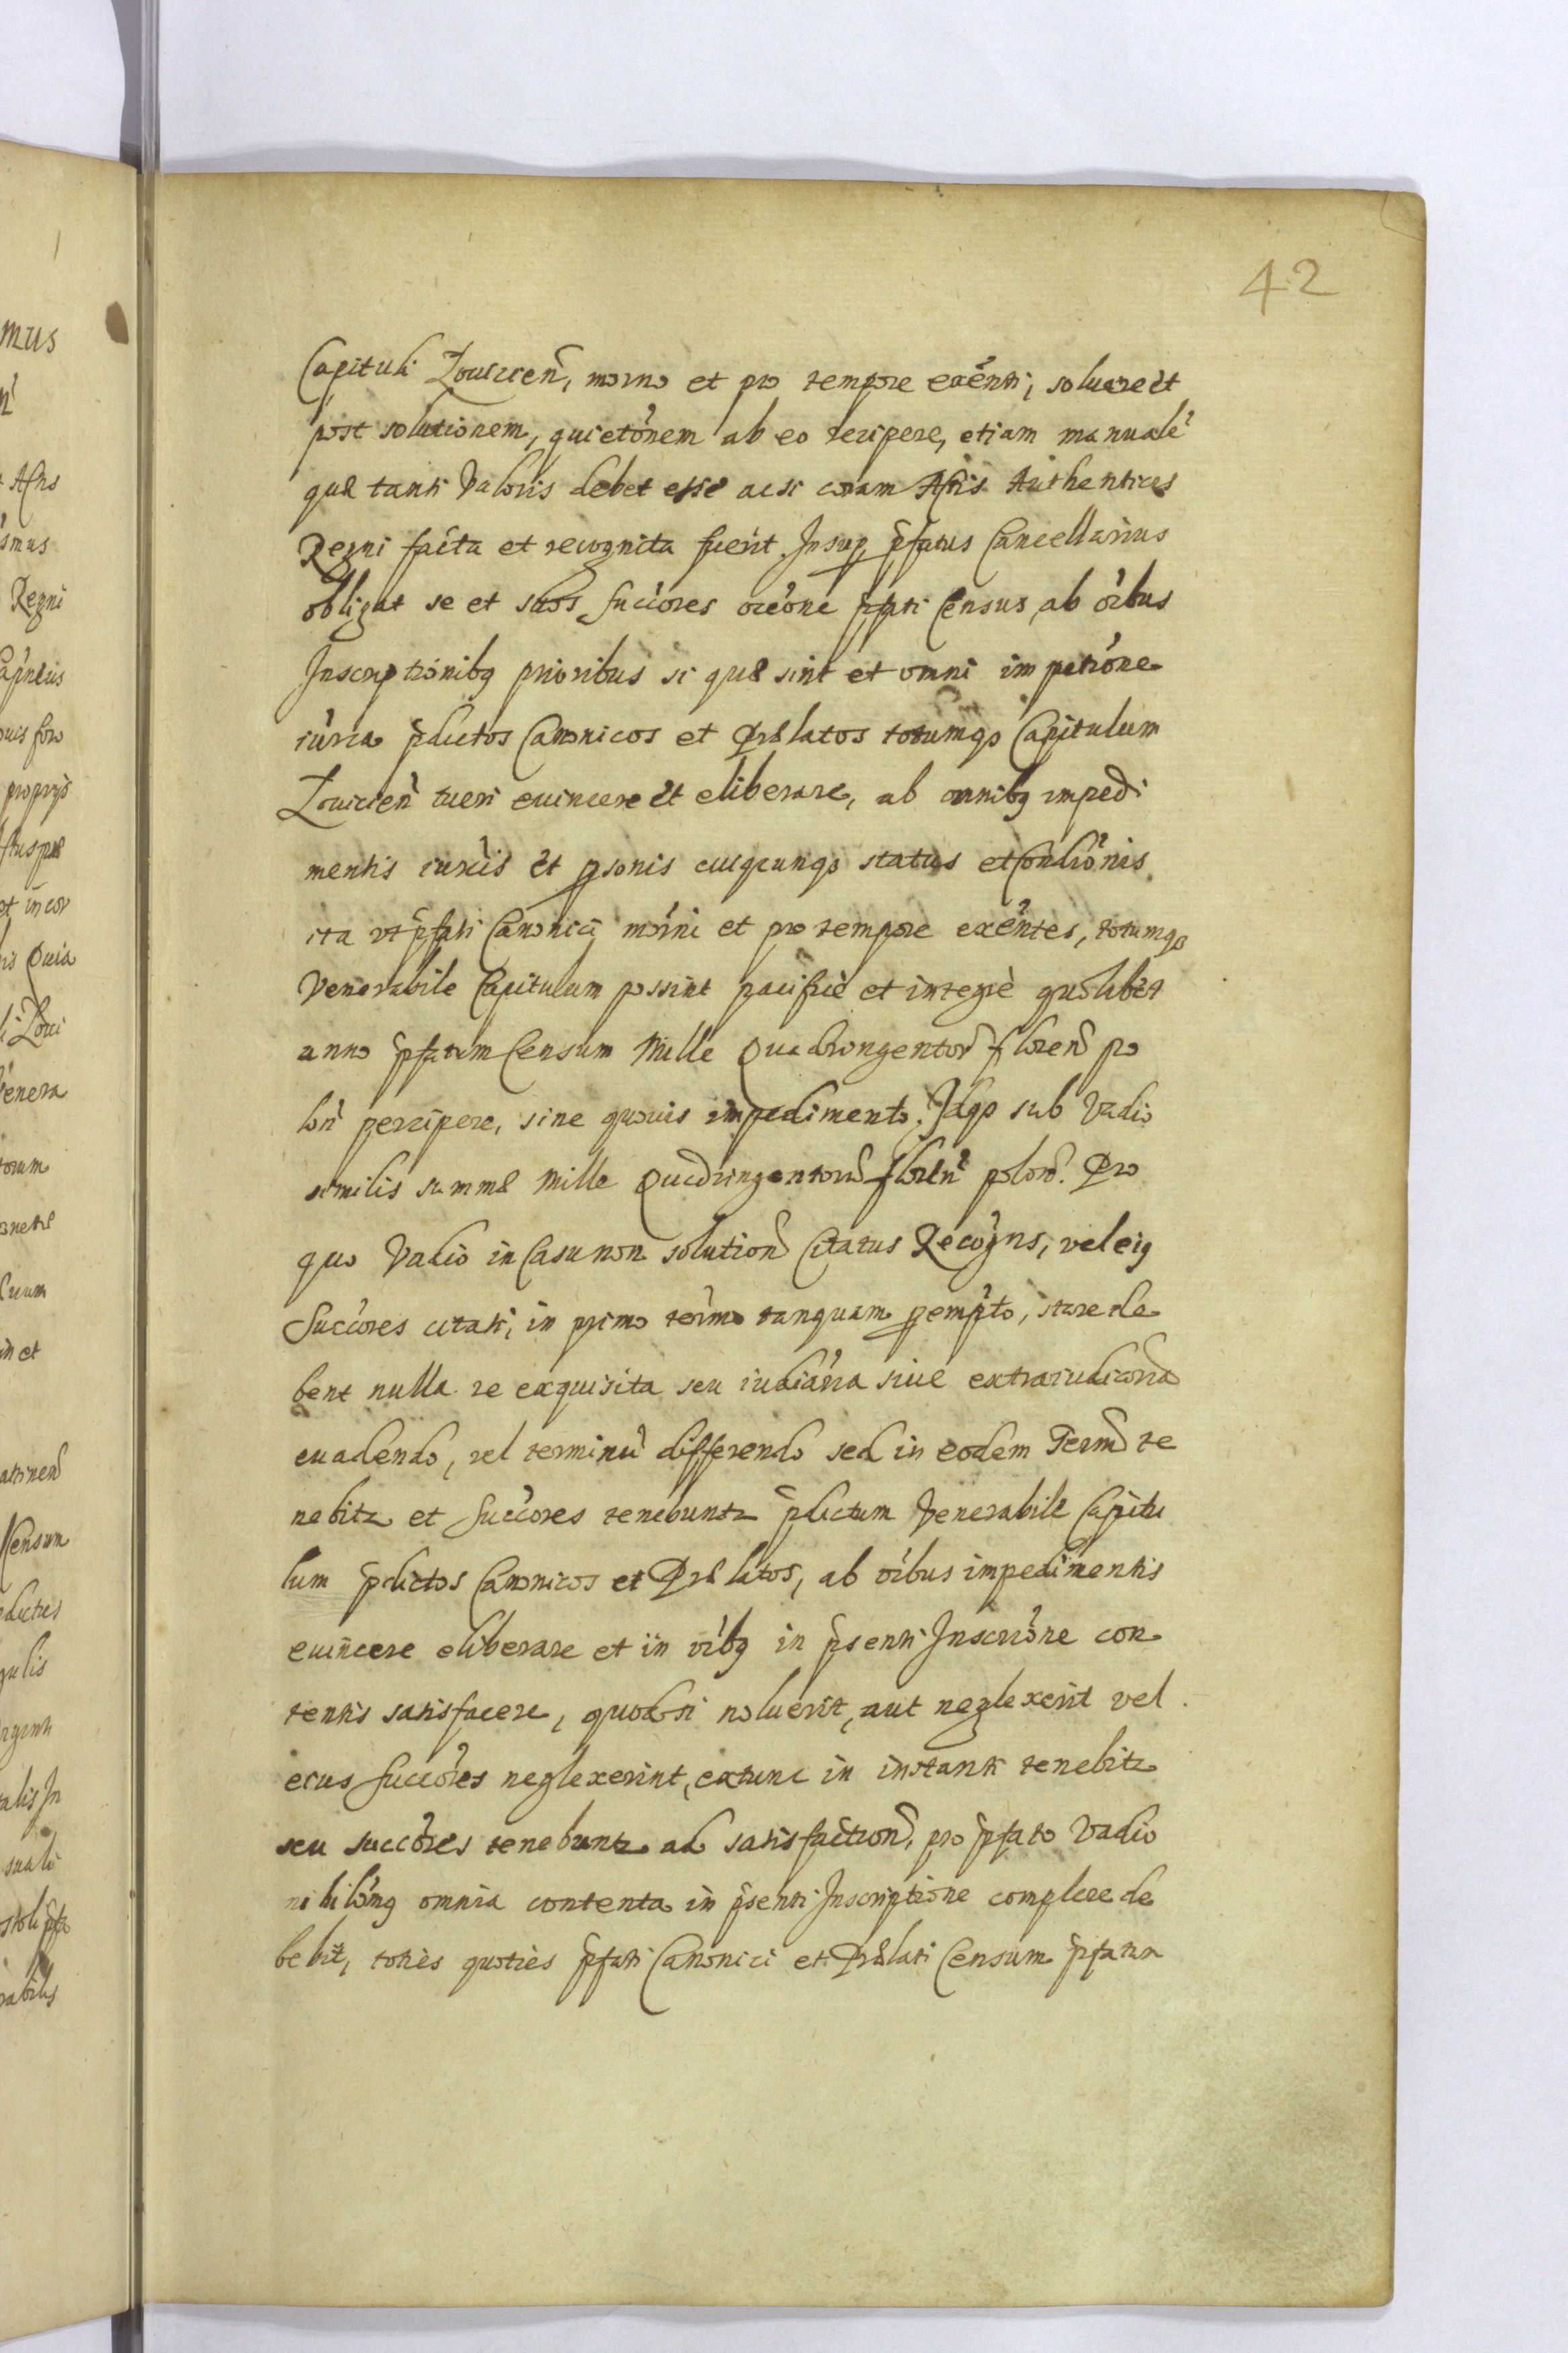 42
Capituli Louicien, morno et pro tempore exēnti, soluere et
post solutionem, quietōnem ab eo recipere, etiam manualē
quæ tanti Valoris debet esse acsi coram Actis Authenticis
Regni facta et recognita fuerit. Insup p̄fatus Cancellarius
obligat se et suos succōres ocēone p̄fati Census ab oībus
Inscriptionibq prioribus si quæ sint et omni impetīone
iurīca p̄dictos Canonicos et Prælatos totumqȝ Capitulum
Louicien tueri euincere et eliberare, ab omnibq impedi
mentis iurīcis et psonis cuiqcunqȝ status et Condiōnis
ita vt p̄fati Canonici mōrni et pro tempore exēntes, totumqȝ
Venerabile Capitulum possint pacificè et integrè quolibet
anno p̄fatum Censum Mille Quadringentor floren po
lon percipere, sine quouis impedimento. Idqȝ sub Vadio
similis summæ Mille Quadringentorum floren polon. Pro
quo Vadio in Casu non solution Citatus Recogns, vel eiq
Succōres citati, in primo termo tanquam pempto, stare de
bent nulla re exquisita seu iudiāria siue extraiudicaria
euadendo, vel terminū differendo sed in eodem Term te
nebitr et Succōres tenebuntr p̄dictum Venerabile Capitu
lum p̄dictos Canonicos et Prælatos, ab oībus impedimentis
euincere eliberare et in oībq in p̄senti Inscriōne con
tentis satisfacere, quod si noluerit, aut neglexerit vel
eius succōres neglexerint, extunc in instanti tenebitr
seu succōres tenebuntr ad satisfaction, pro p̄fato Vadio
nihilomq omnia contenta in p̄senti Inscriptione complere de
bebit, toties quoties p̄fati Canonici et Prælati Censum p̄fatum
mus
Regni
proprijs
et incor
Quia
Venera
torum
in et
Censum
gulis
talis In